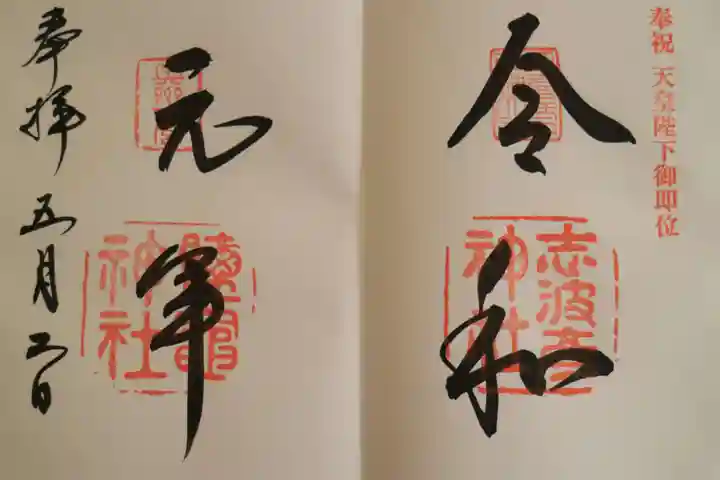 奉祝 天皇陛下御即位
令和
志波彦
神社
元年
鹽竈
神社
奉拝 五月 日